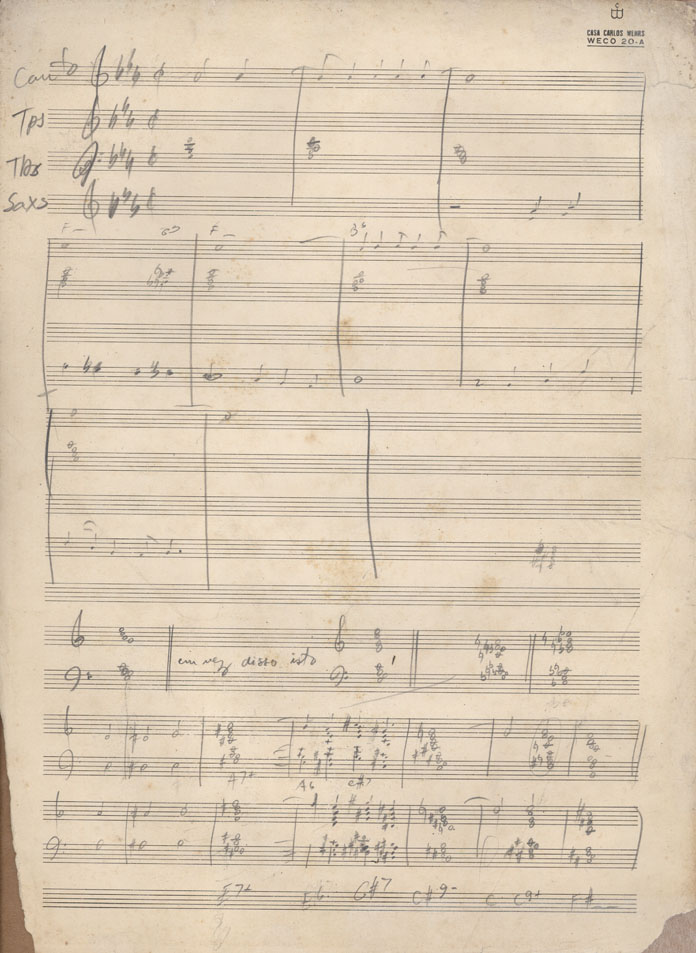 CASA CARLOS WEHRS
WECO 20-A
Canto
Tps
Tbs
Saxs
F-
F-
em vez disso isto
A7+
A6 C#7
E7+ E6 G#7 C#9- C C9+ F#